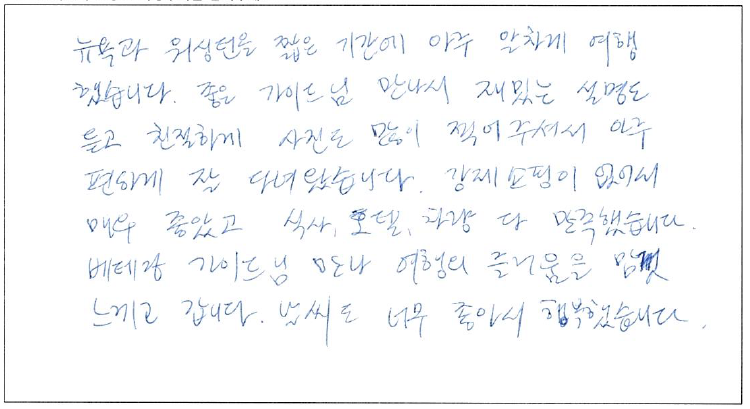 뉴욕과 워싱턴을 짧은 기간에 아주 알차게 여행
했습니다. 좋은 가이드님 만나서 재밌는 설명도
듣고 친절하게 사진도 많이 찍어주셔서 아주
편하게 잘 다녀왔습니다. 강제쇼핑이 없어서
매우 좋았고 식사, 호텔, 차량 다 만족했습니다.
베테랑 가이드님 만나 여행의 즐거움을 맘껏
느끼고 갑니다. 날씨도 너무 좋아서 행복했습니다.